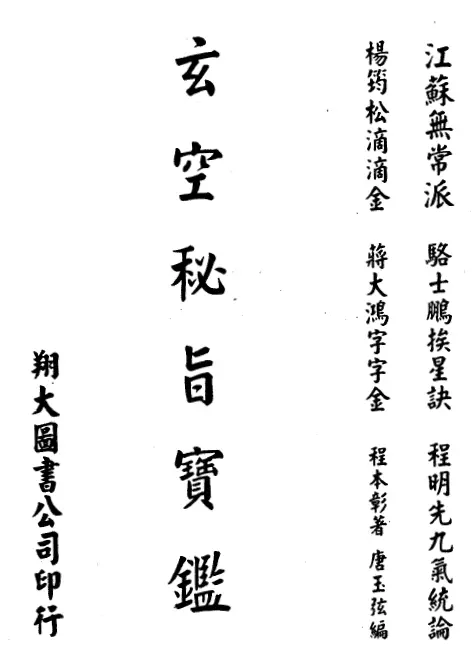 江蘇無常派　駱士鵬挨星訣　程明先九氣統論
楊筠松滴滴金　蔣大鴻字字金　程本彰著　唐玉弦編
玄空秘旨寶鑑
翔大圖書公司印行